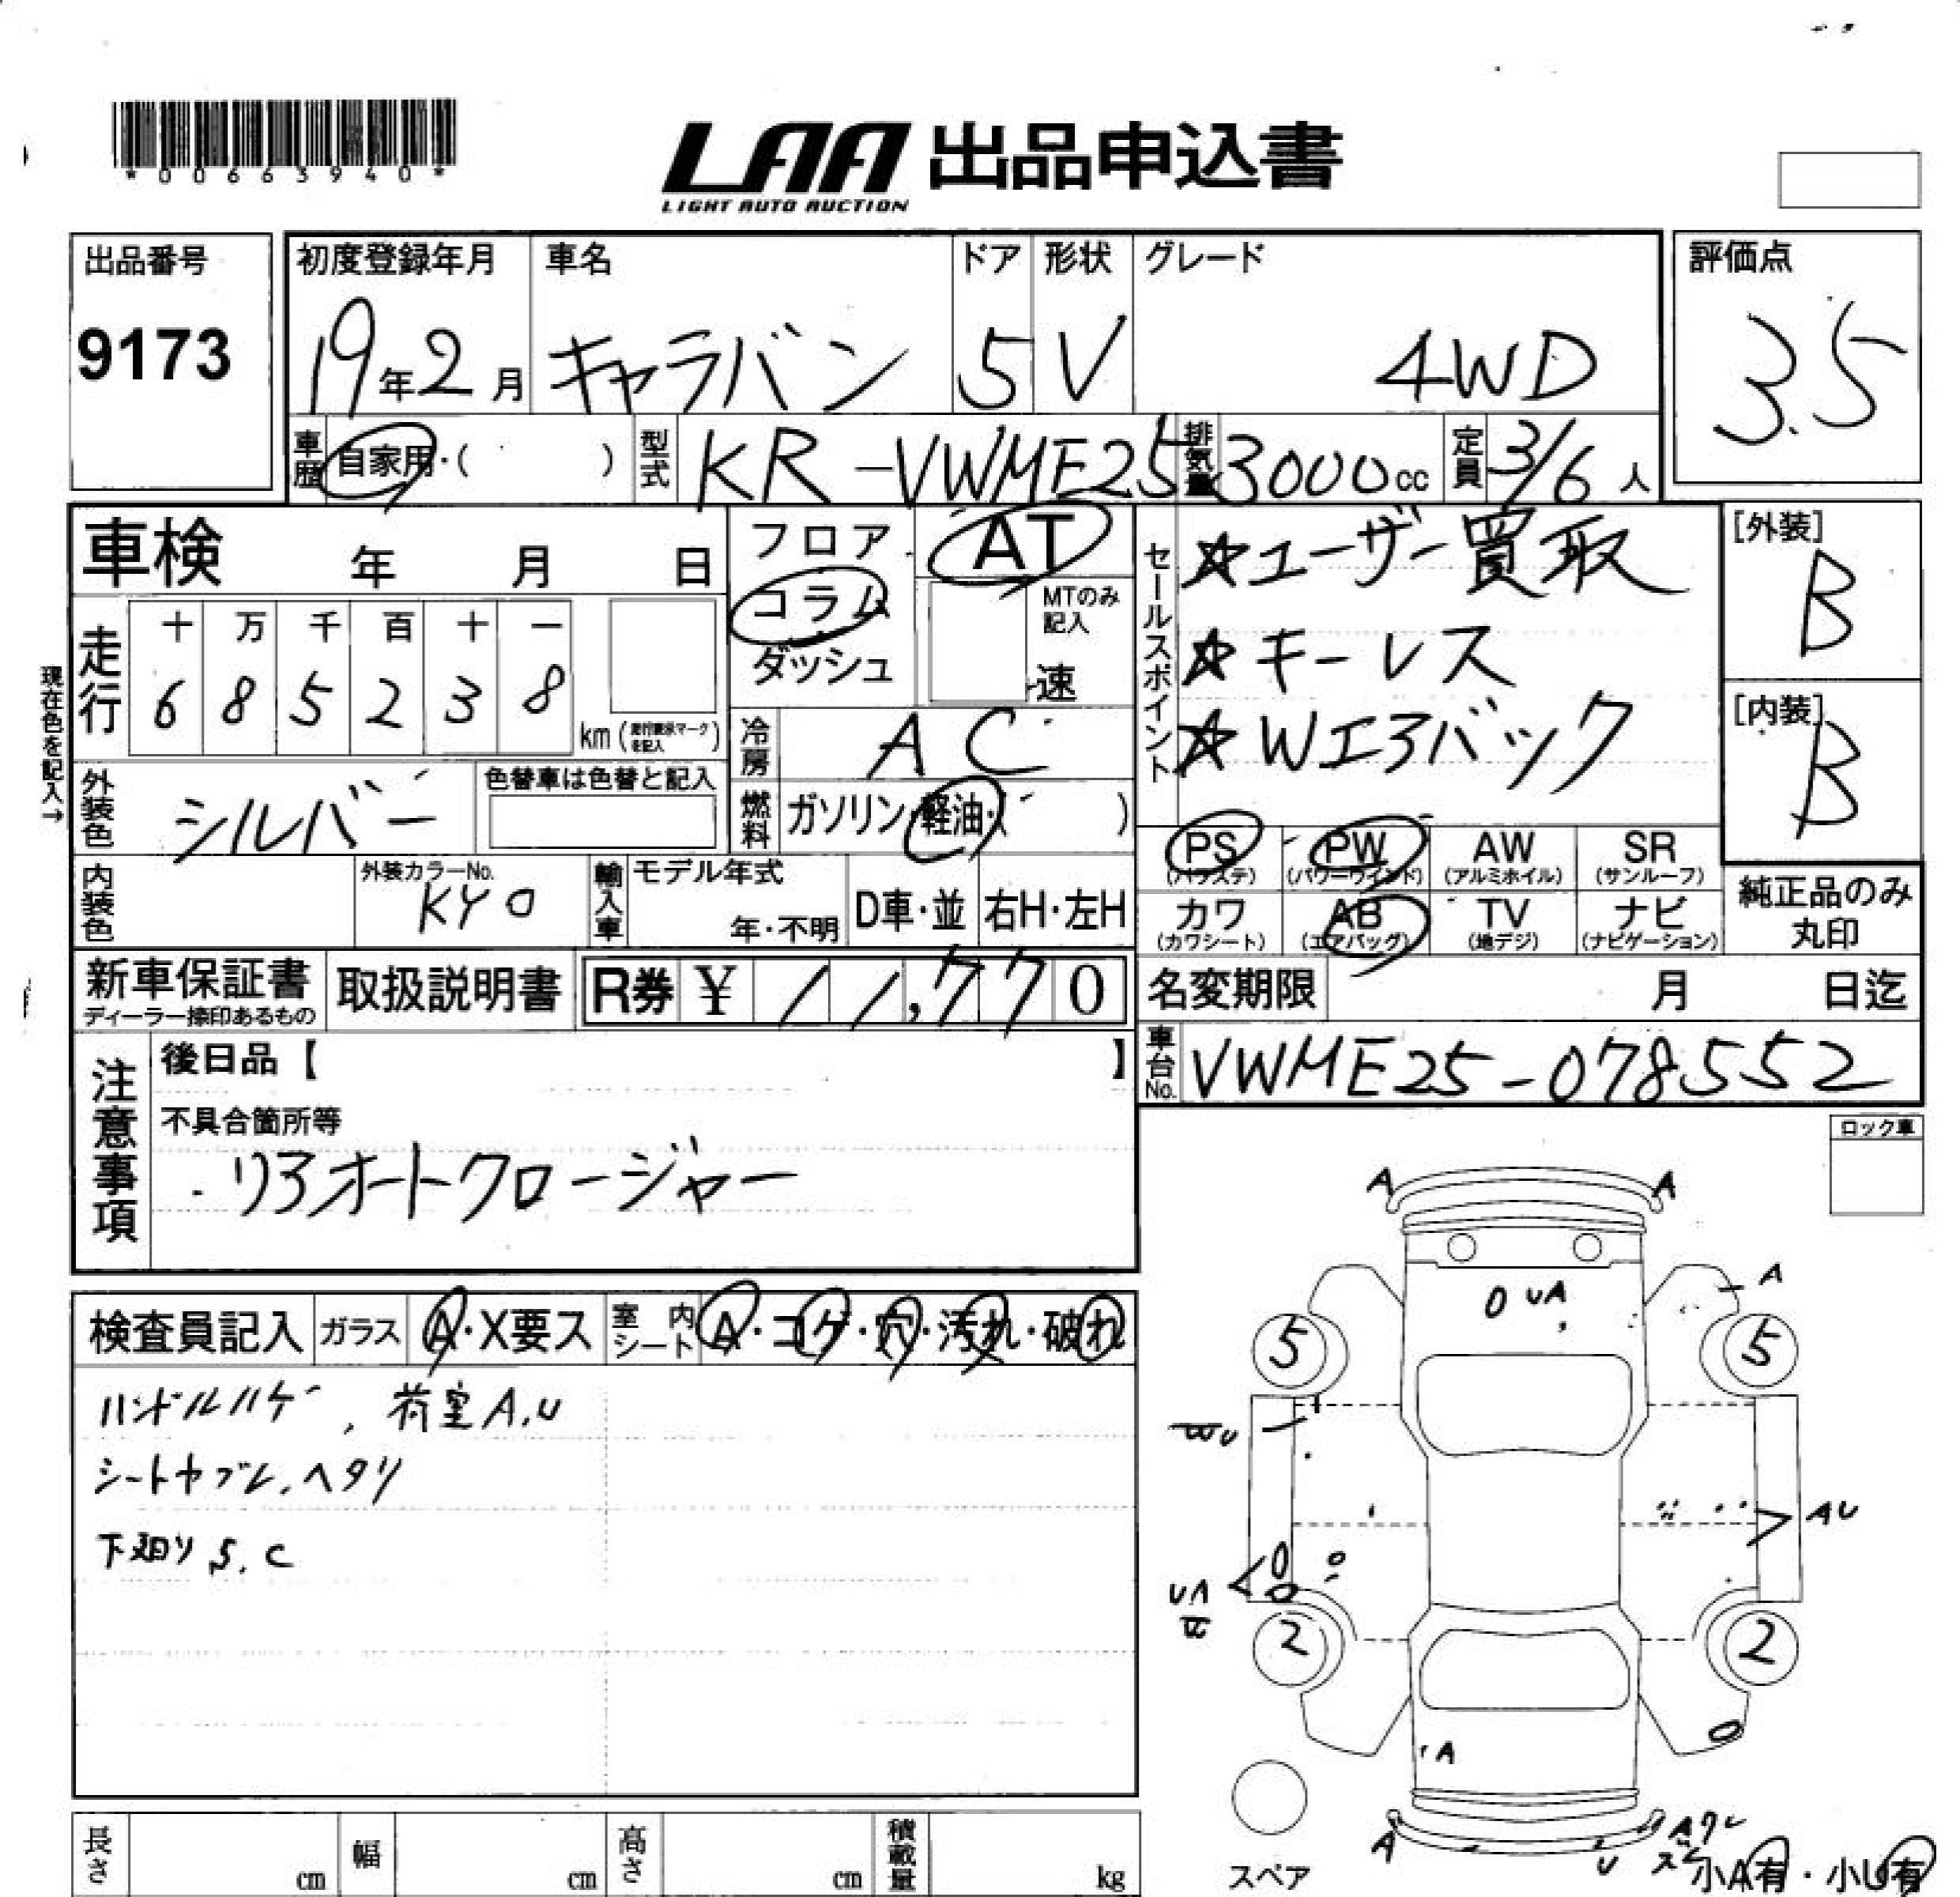 *00663940*
LAA 出品申込書
LIGHT AUTO AUCTION
出品番号
9173
初度登録年月
19年2月
車名
キャラバン
ドア
5
形状
V
グレード
4WD
評価点
3.5
車歴 自家用・( )
型式 KR-VWME25
排気量 3000cc
定員 3/6人
車検 年 月 日
フロア
コラム
ダッシュ
AT
MTのみ記入
速
セールスポイント
☆ユーザー買取
☆キーレス
☆Wエアバック
[外装]
B
[内装]
B
現在色を記入→
走行
十 万 千 百 十 一
6 8 5 2 3 8
km
冷房 AC
燃料 ガソリン・軽油・( )
外装色 シルバー
色替車は色替と記入
内装色
外装カラーNo.
KY0
輸入車
モデル年式
年・不明
D車・並
右H・左H
PS
(パワステ)
PW
(パワーウインド)
AW
(アルミホイル)
SR
(サンルーフ)
カワ
(カワシート)
AB
(エアバッグ)
TV
(地デジ)
ナビ
(ナビゲーション)
純正品のみ
丸印
新車保証書
ディーラー捺印あるもの
取扱説明書
R券 ¥ 11,770
名変期限 月 日迄
車台No. VWME25-078552
注意事項
後日品【 】
不具合箇所等
リアオートクロージャー
ロック車
検査員記入
ガラス A・X要ス
室内シート A・コゲ・穴・汚れ・破れ
ハンドルハゲ、荷室A,U
シートヤブレ、ヘタリ
下廻りS,C
A A
A
UA
5 5
AU
UA
2 2
A
A
U
スペア
小A有・小U有
長さ cm
幅 cm
高さ cm
積載量 kg